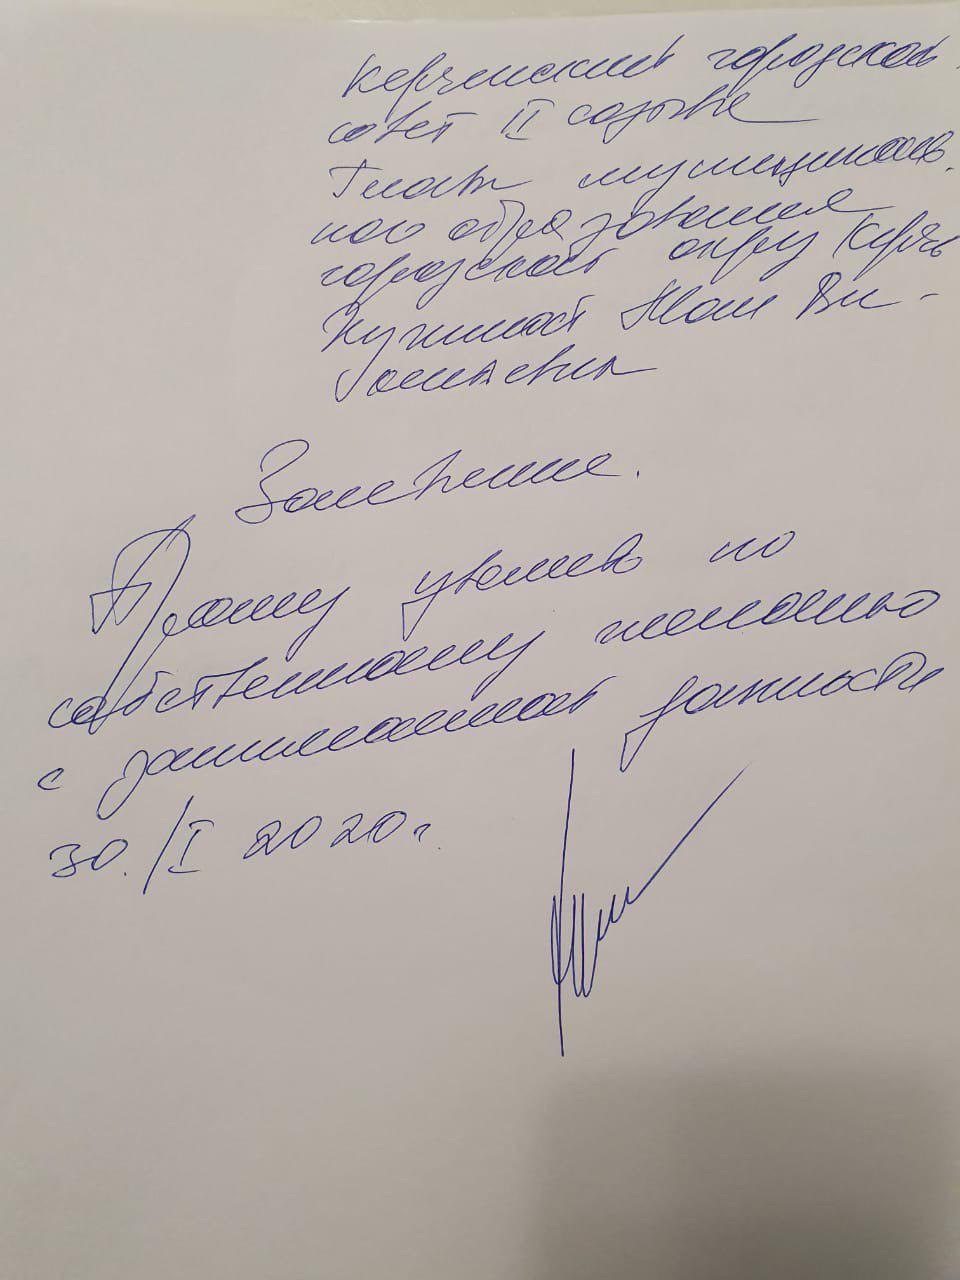 Керченский городской
совет II созыва
Глава муниципаль-
ного образования
городской округ Керчь
Заявление.
Прошу уволить по
собственному желанию
с занимаемой должности
30./I 2020г.